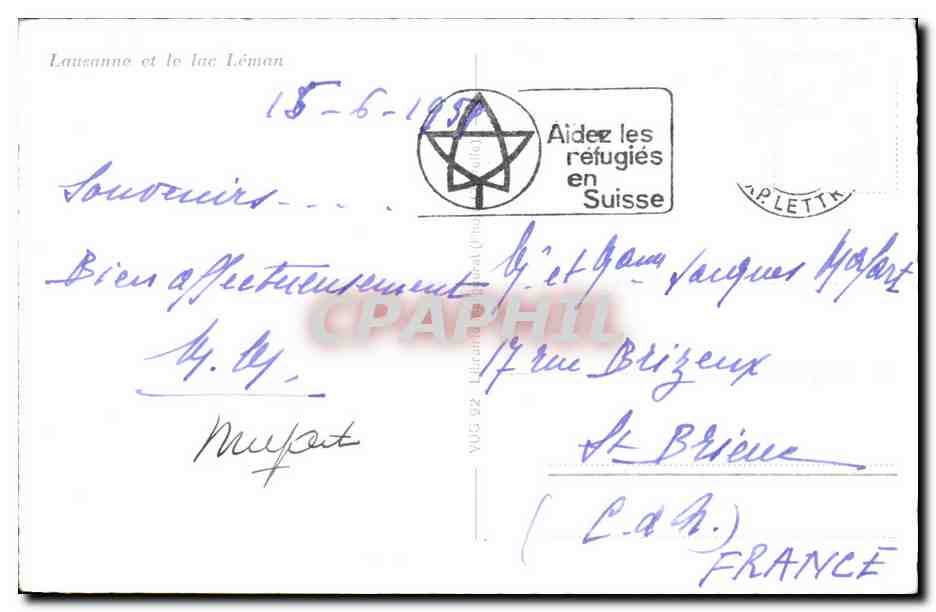 Lausanne et le lac Léman
15-6-195
Souvenirs - - - .
Bien affectueusement
M. M.
Aidez les
réfugiés
en
Suisse
P. LETTR
Mr et Mme Jacques
17 rue Brizeux
St Brieuc
(C. d N.)
FRANCE
VUG 92 Librairie
CPAPHIL